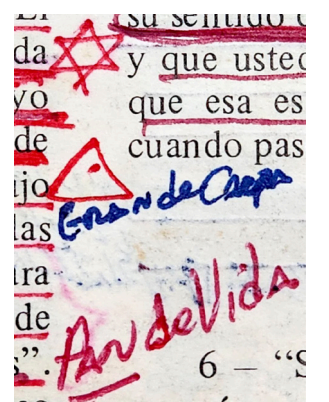 El
da
yo
de
ijo
las
ira
de
s”.
su sentido
y que usted
que esa es
cuando pas
Gran de
Pan de Vida
6 – “S